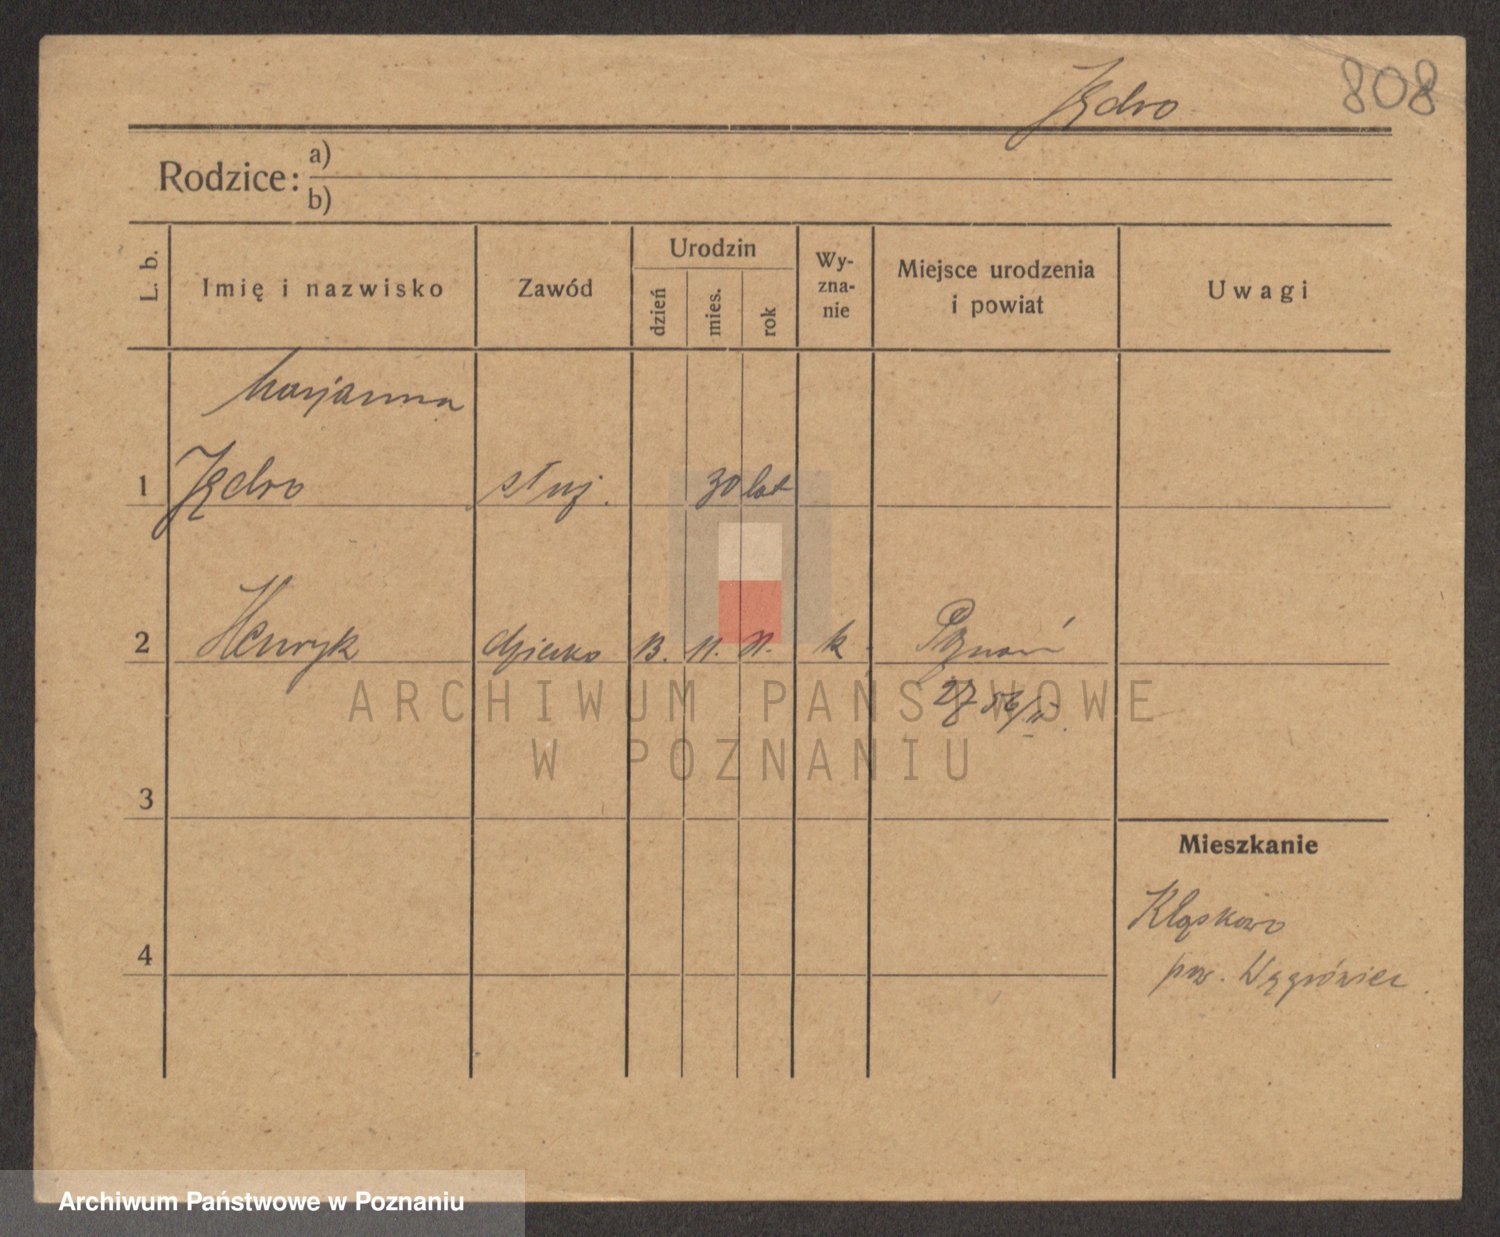 Jędro
808
Rodzice: a)
b)
L. b.
Imię i nazwisko
Zawód
Urodzin
dzień
mies.
rok
Wy-
zna-
nie
Miejsce urodzenia
i powiat
Uwagi
Marjanna
1 Jędro służ. 30 lat
2 Henryk dziecko 13. 11. 11. k. Poznań
27
3
Mieszkanie
Kłąskowo
4
pow. Wągrówiec
ARCHIWUM PAŃSTWOWE
W POZNANIU
Archiwum Państwowe w Poznaniu